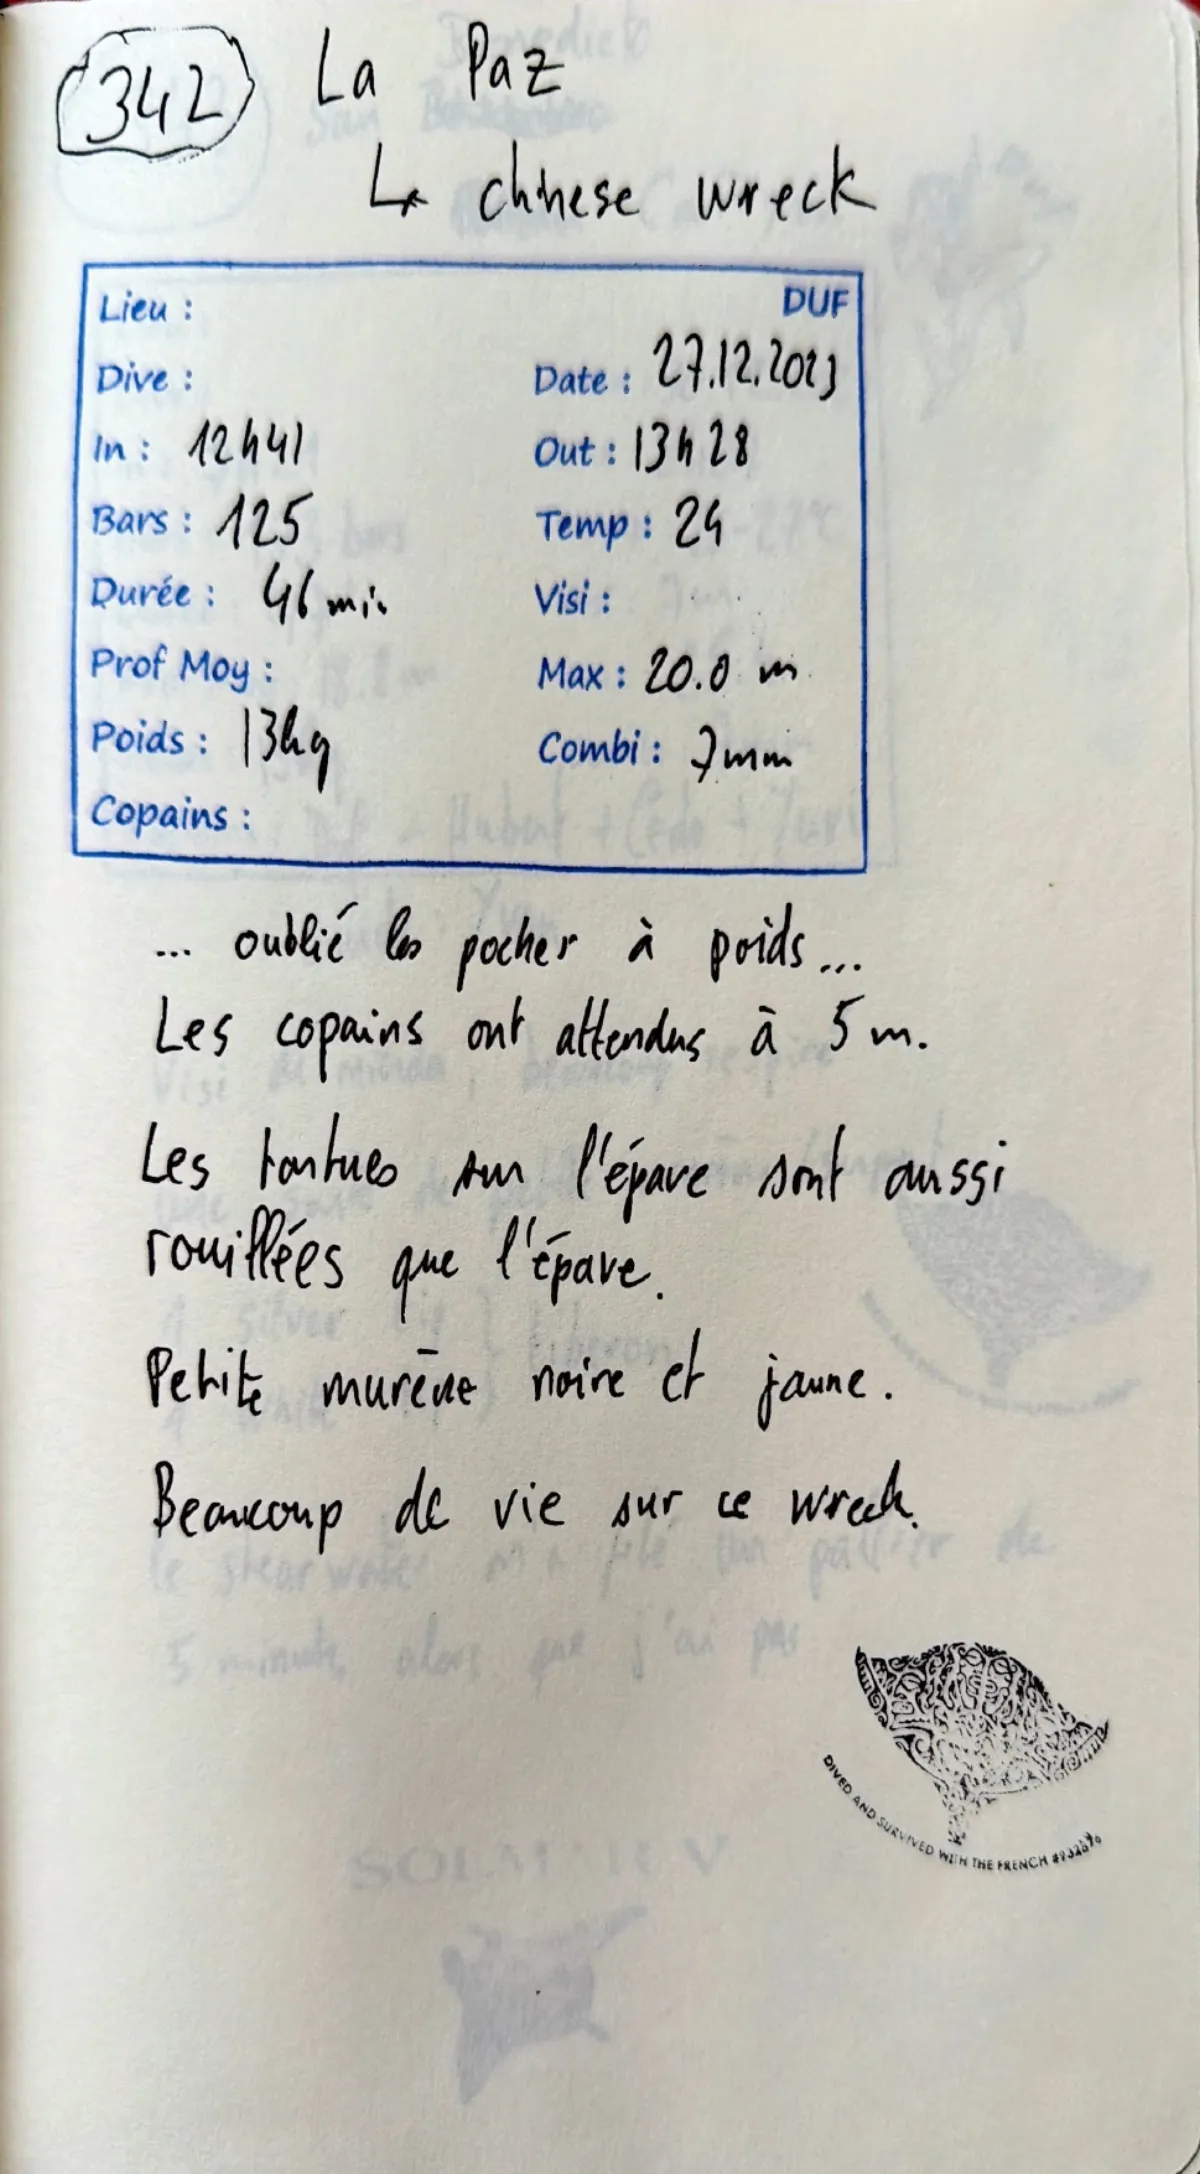 342 La Paz
↳ chinese wreck
Lieu : DUF
Dive : Date : 27.12.2023
In : 12h41 Out : 13h28
Bars : 125 Temp : 24
Durée : 46 min Visi :
Prof Moy : Max : 20.0 m
Poids : 13kg Combi : 7mm
Copains :
... oublié les pocher à poids...
Les copains ont attendus à 5 m.
Les tortues sur l'épave sont aussi
rouillées que l'épave.
Petite murène noire et jaune.
Beaucoup de vie sur ce wreck.
DIVED AND SURVIVED WITH THE FRENCH